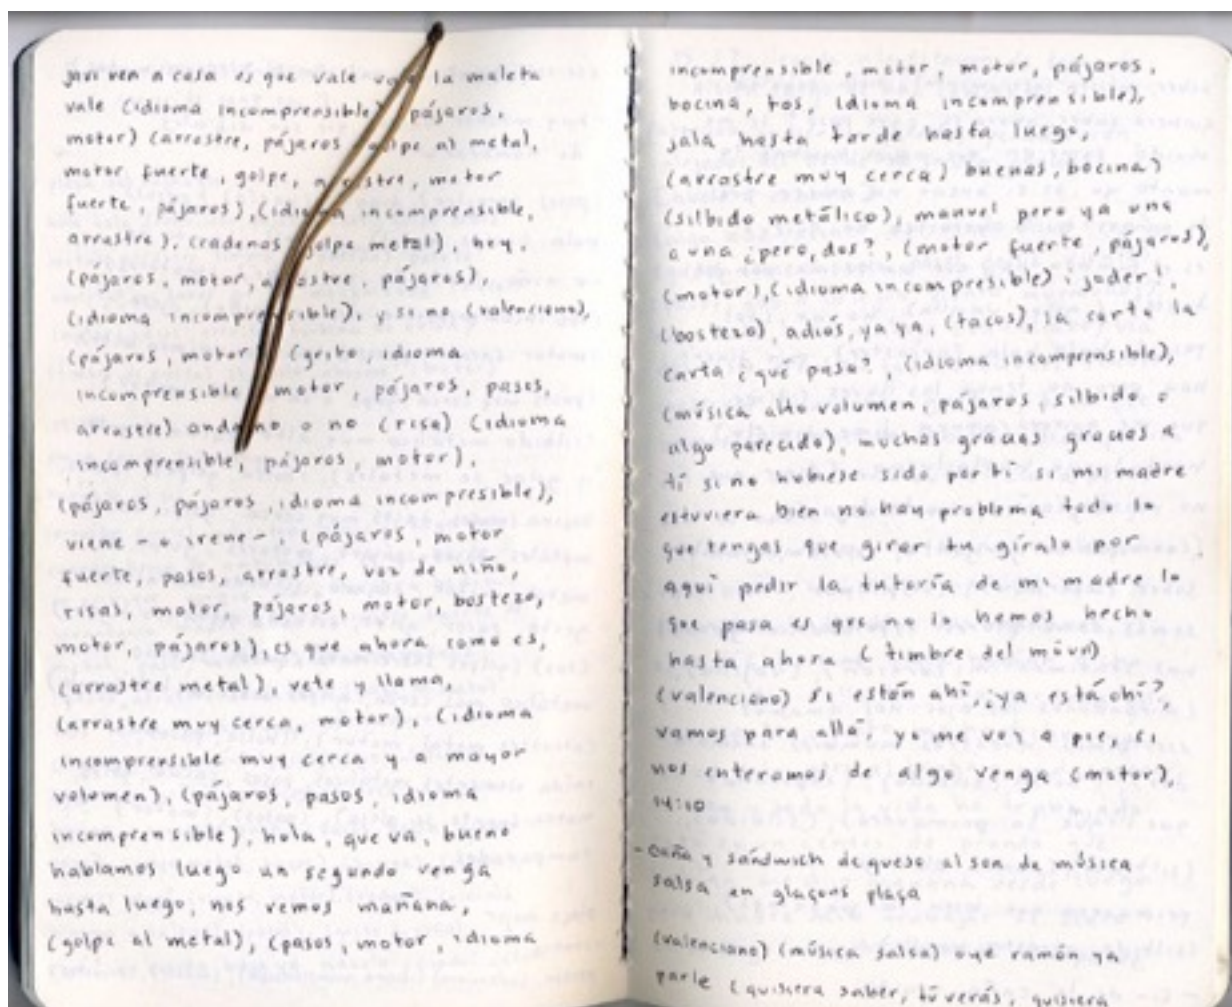 javi ven a casa es que vale vale la maleta
vale (idioma incomprensible) pájaros,
motor) (arrastre, pájaros golpe al metal,
motor fuerte, golpe, arrastre, motor
fuerte, pájaros), (idioma incomprensible,
arrastre), (cadenas golpe metal), hey,
(pájaros, motor, arrastre, pájaros),
(idioma incomprensible), y si no (valenciano),
(pájaros motor) (grito, idioma
incomprensible, motor, pájaros, pasos,
arrastre) o no (risa) (idioma
incomprensible, pájaros, motor),
(pájaros, pájaros, idioma incompresible),
viene - o irene - (pájaros, motor
fuerte, pasos, arrastre, voz de niño,
(risas, motor, pájaros, motor, bostezo,
motor, pájaros), es que ahora como es,
(arrastre metal), vete y llama,
(arrastre muy cerca, motor), (idioma
incomprensible muy cerca y a mayor
volumen), (pájaros, pasos, idioma
incomprensible), hola, que va, bueno
hablamos luego un segundo venga
hasta luego, nos vemos mañana,
(golpe al metal), (pasos, motor, idioma
incomprensible, motor, motor, pájaros,
bocina, tos, idioma incomprensible),
jala hasta tarde hasta luego,
(arrastre muy cerca) buenas, bocina)
(silbido metálico), manuel pero ya una
a una ¿pero, dos?, (motor fuerte, pájaros),
(motor), (idioma incompresible) ¡joder!,
(bostezo) adiós, ya ya, (tacos), la carta la
carta ¿qué pasa?, (idioma incomprensible),
(música alto volumen, pájaros, silbido o
algo parecido), muchas gracias gracias a
tí si no hubiese sido por tí si mi madre
estuviera bien no hay problema todo lo
que tengas que girar tu gíralo por
aquí pedir la tutoría de mi madre lo
que pasa es que no lo hemos hecho
hasta ahora (timbre del móvil)
(valenciano) si están ahí, ¿ya está ahí?
vamos para allá, yo me voy a pie, si
nos enteramos de algo venga (motor),
14:10
- caña y sándwich de queso al son de música
salsa en glaçons plaça
(valenciano) (música salsa) oye ramón ya
parle (quisiera saber, tú verás, quisiera